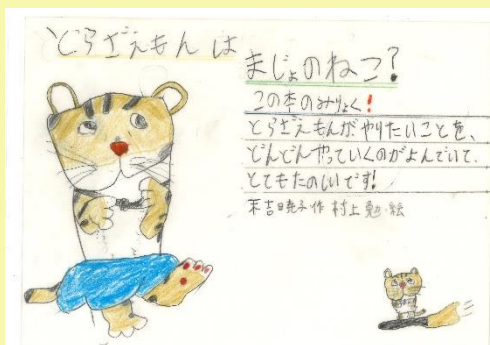 とらざえもんは
まじょのねこ?
この本のみりょく!
とらざえもんがやりたいことを、
どんどんやっていくのがよんでいて、
とてもたのしいです!
末吉暁子 作 村上勉・絵